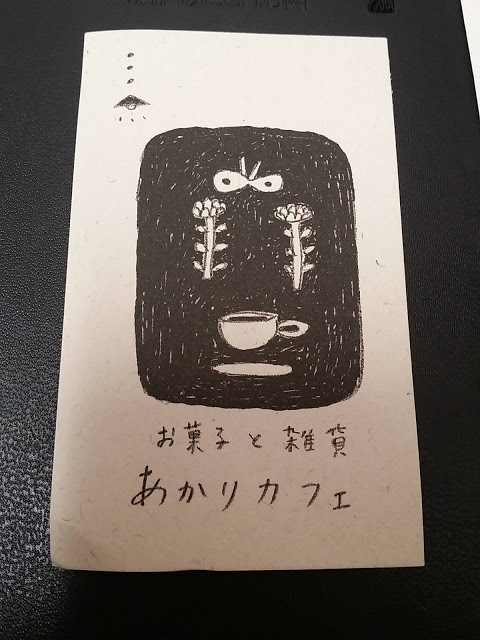 お菓子と雑貨
あかりカフェ